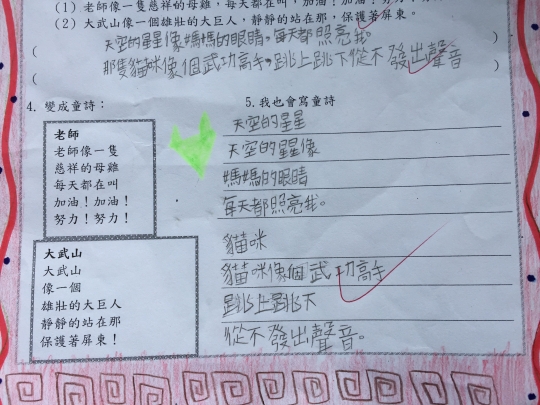 (1) 老師像一隻慈祥的母雞，每天都在叫，加油！加油！
(2) 大武山像一個雄壯的大巨人，靜靜的站在那，保護著屏東。
( 天空的星星像媽媽的眼睛，每天都照亮我。
( 那隻貓咪像個武功高手，跳上跳下從不發出聲音
4. 變成童詩：
老師
老師像一隻
慈祥的母雞
每天都在叫
加油！加油！
努力！努力！
大武山
大武山
像一個
雄壯的大巨人
靜靜的站在那
保護著屏東！
5. 我也會寫童詩
天空的星星
天空的星星像
媽媽的眼睛
每天都照亮我。
貓咪
貓咪像個武功高手
跳上跳下
從不發出聲音。